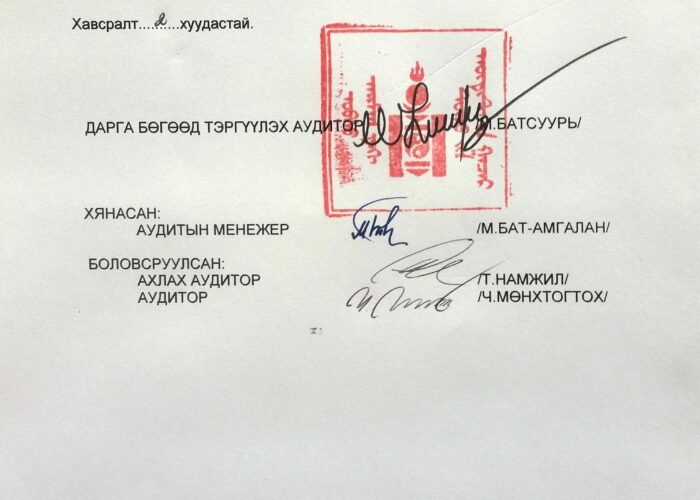 Хавсралт....2....хуудастай.
ДАРГА БӨГӨӨД ТЭРГҮҮЛЭХ АУДИТОР /БАТСУУРЬ/
ХЯНАСАН:
АУДИТЫН МЕНЕЖЕР /М.БАТ-АМГАЛАН/
БОЛОВСРУУЛСАН:
АХЛАХ АУДИТОР /Т.НАМЖИЛ/
АУДИТОР /Ч.МӨНХТОГТОХ/